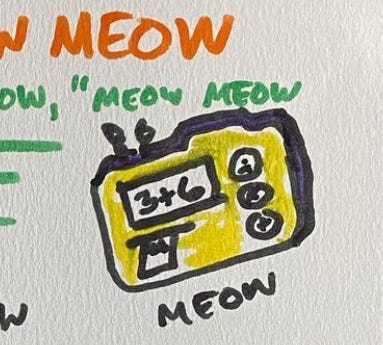 N MEOW
OW, "MEOW MEOW
3+6
W
MEOW